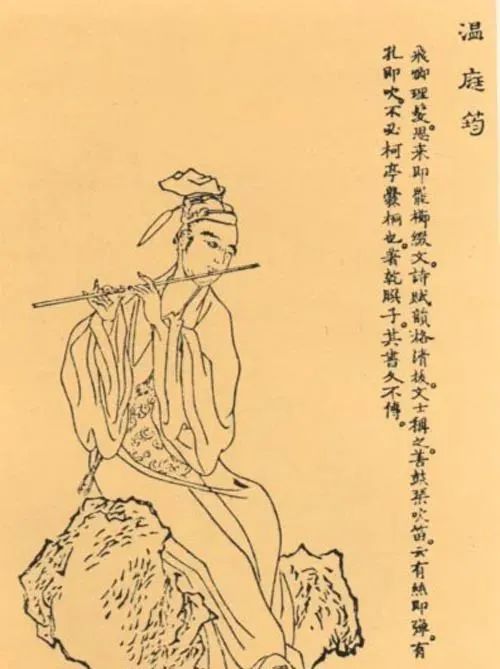 温庭筠
飛卿理髮思来即罷櫛綴文。詩賦韻格清拔。文士稱之。善鼓琴吹笛。云有絲即彈。有
孔即吹。不必柯亭爨桐也。著乾𦠆子。其書久不傳。